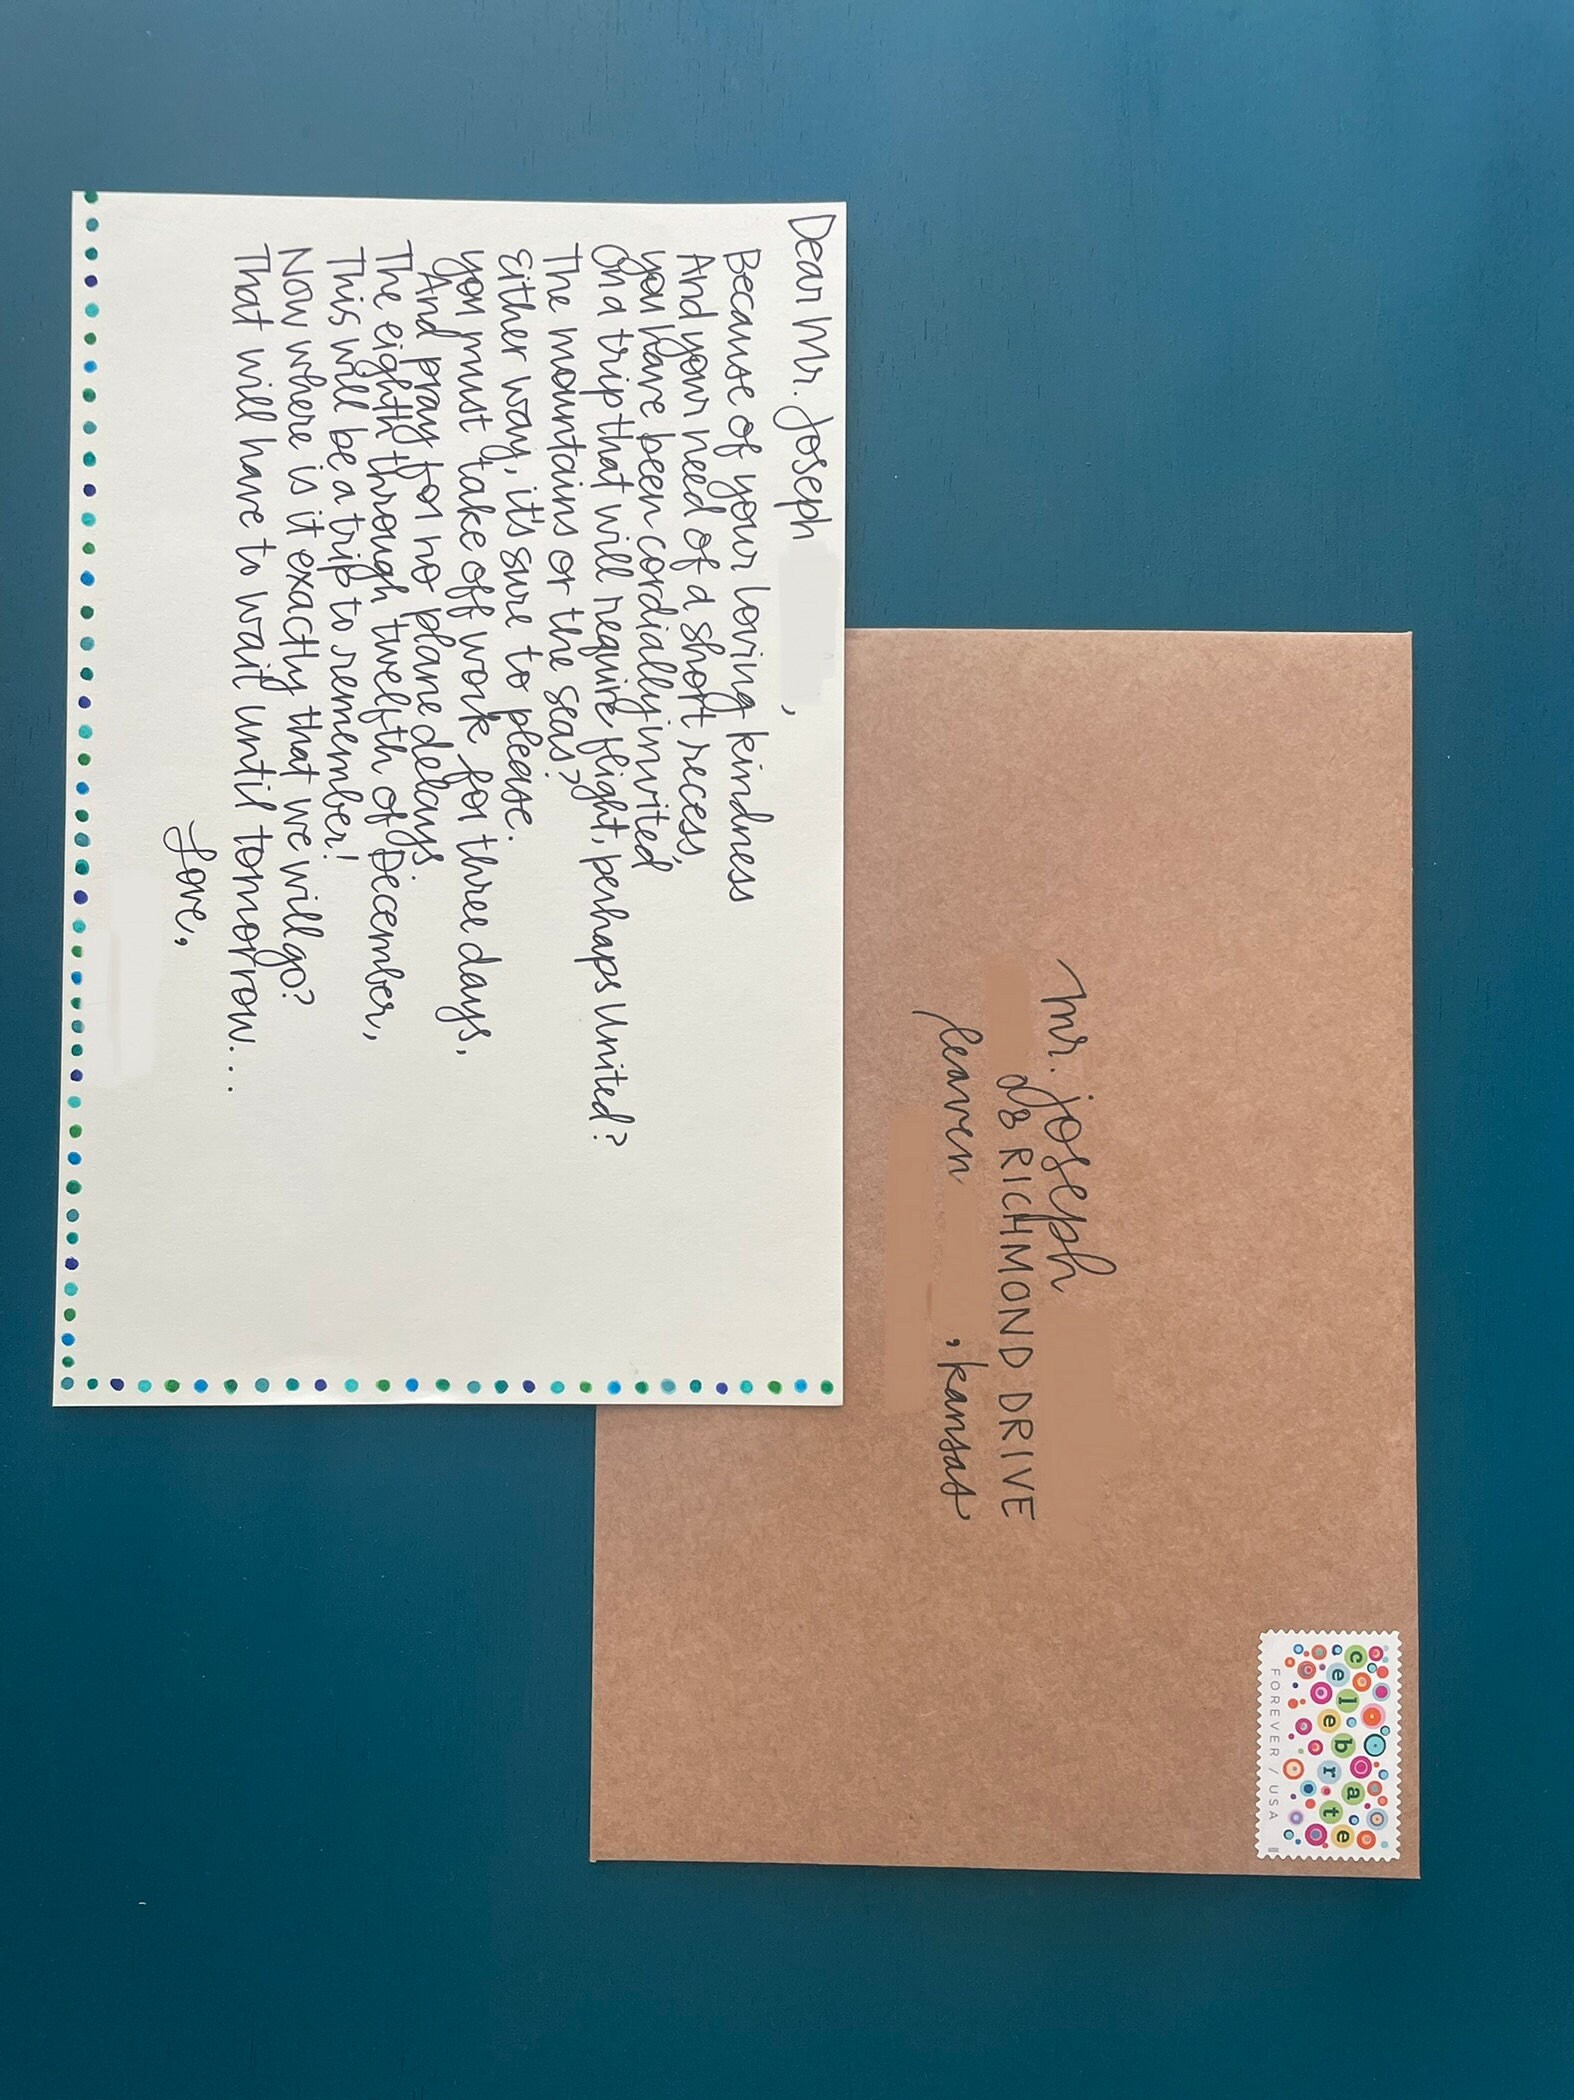 Dear Mr. Joseph ,
Because of your loving kindness
And your need of a short recess,
you have been cordially invited
On a trip that will require flight, perhaps United?
The mountains or the seas?
Either way, it's sure to please.
you must take off work for three days,
And pray for no plane delays.
The eighth through twelfth of December,
This will be a trip to remember!
Now where is it exactly that we will go?
That will have to wait until tomorrow...
Love,
Mr. Joseph
28 RICHMOND DRIVE
leaven , kansas
celebrate
FOREVER / USA